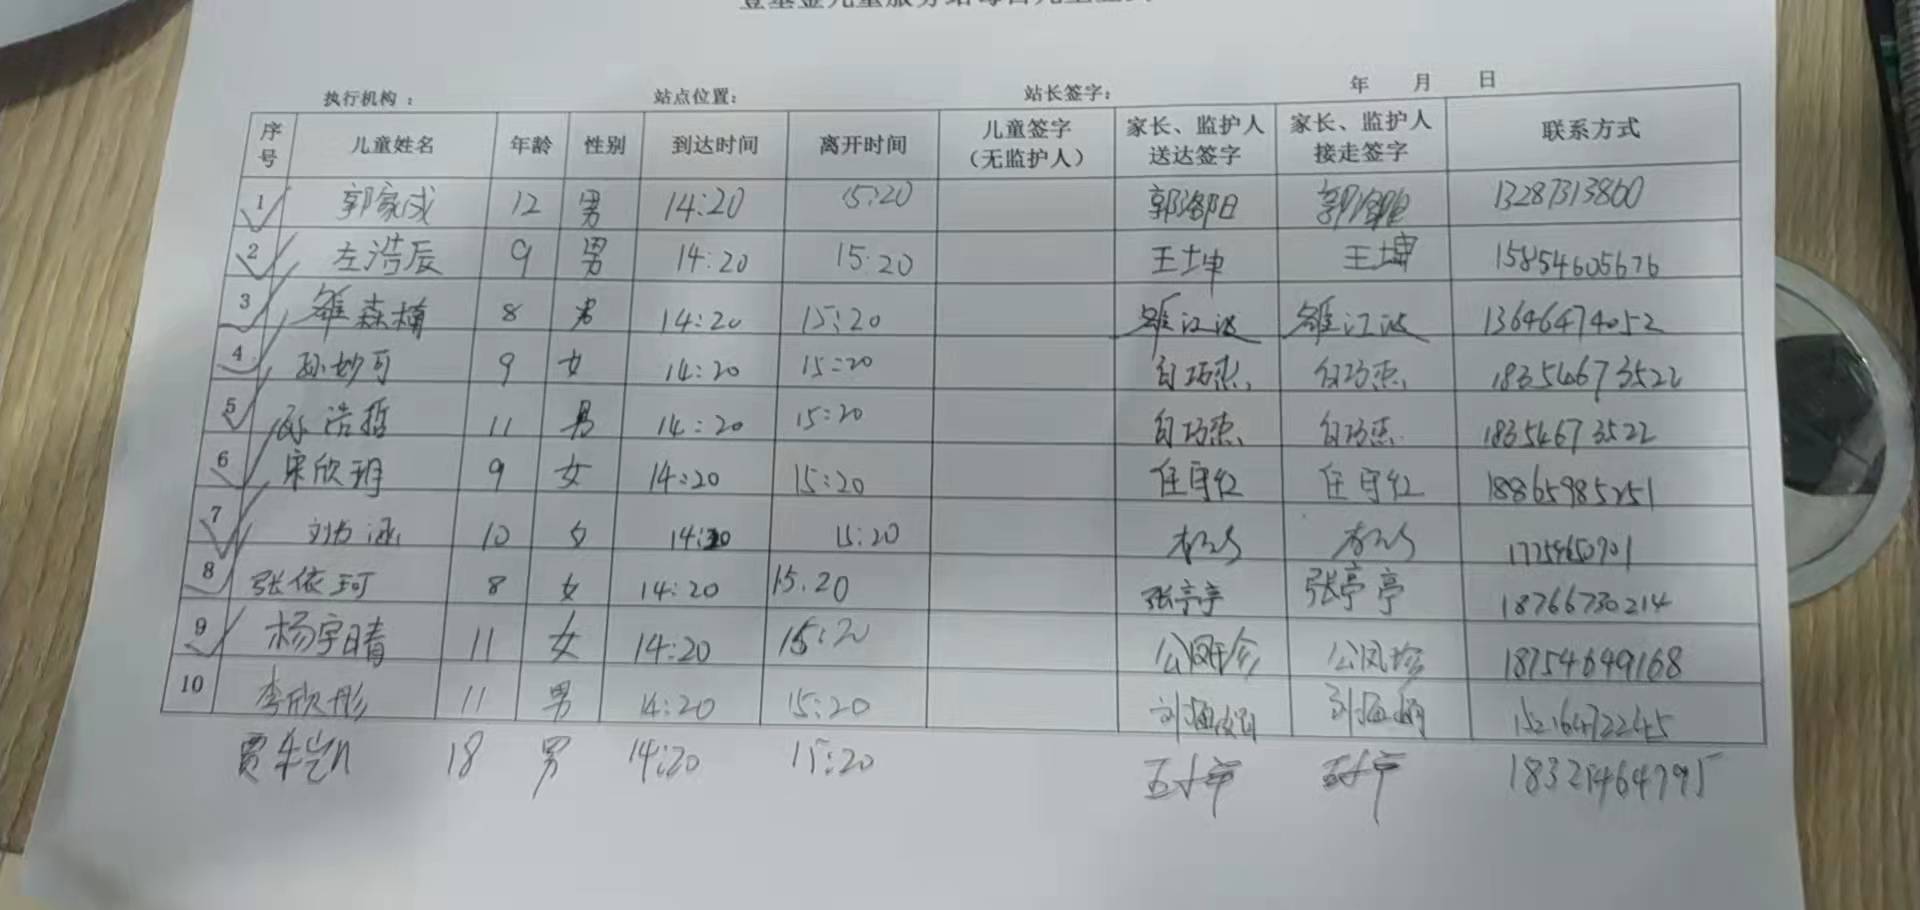 执行机构： 站点位置： 站长签字： 年 月 日
序号 儿童姓名 年龄 性别 到达时间 离开时间 儿童签字（无监护人） 家长、监护人送达签字 家长、监护人接走签字 联系方式
1 郭家成 12 男 14:20 15:20 13287313860
2 左浩辰 9 男 14:20 15:20 王坤 王坤 15854605676
3 雒森楠 8 男 14:20 15:20 雒江波 雒江波 13646474052
4 孙妙可 9 女 14:20 15:20 白巧杰 白巧杰 18354673522
5 孙浩哲 11 男 14:20 15:20 白巧杰 白巧杰 18354673522
6 宋欣玥 9 女 14:20 15:20 任守红 任守红 18865985251
7 10 女 14:20 15:20
8 张依珂 8 女 14:20 15.20 张亭亭 张亭亭 18766730214
9 杨宇晴 11 女 14:20 15:20 公凤珍 公凤珍 18754649168
10 李欣彤 11 男 14:20 15:20 15216472245
18 男 14:20 15:20